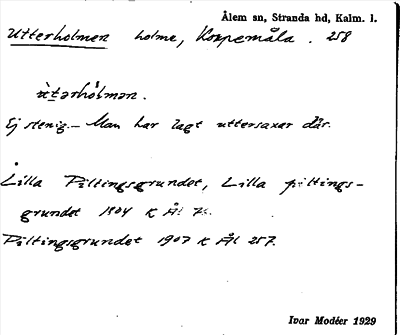 Ålem sn, Stranda hd, Kalm. l.
Utterholmen holme, Koppemåla. 258
ùtərhòlmən.
Ej stenig. – Man har lagt uttersaxar där.
Lilla Piltingsgrundet, Lilla piltings-
grundet 1804 K Ål
Piltingsgrundet 1907 K Ål 257.
Ivar Modéer 1929